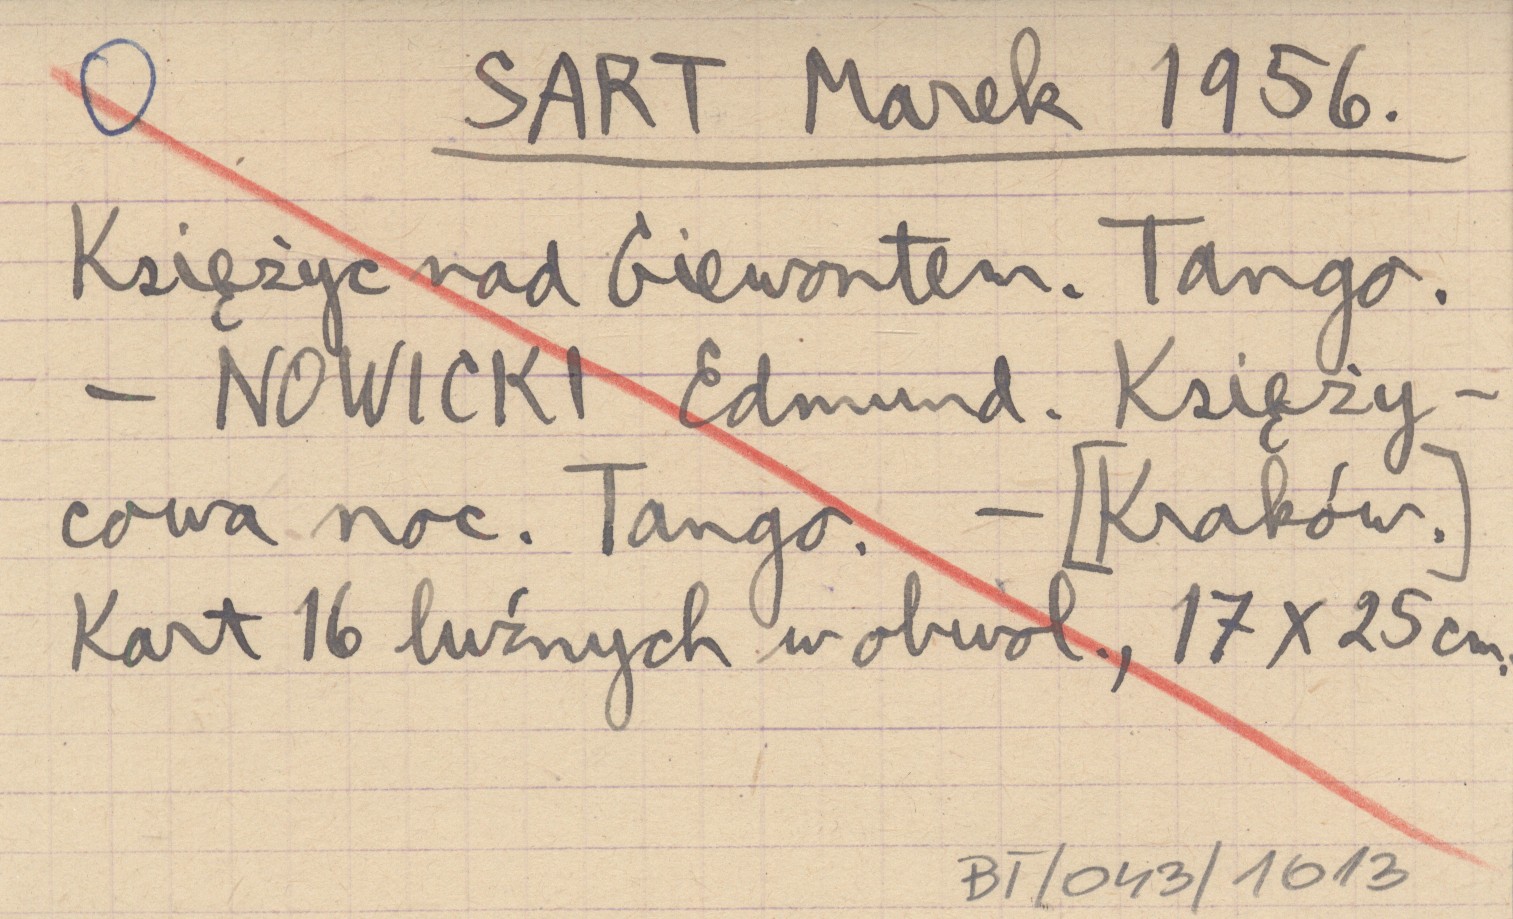 O SART Marek 1956.
Księżyc nad Giewontem. Tango.
– NOWICKI Edmund. Księży-
cowa noc. Tango. – [Kraków.]
Kart 16 luźnych w obwol., 17 x 25 cm.
BT/043/1013